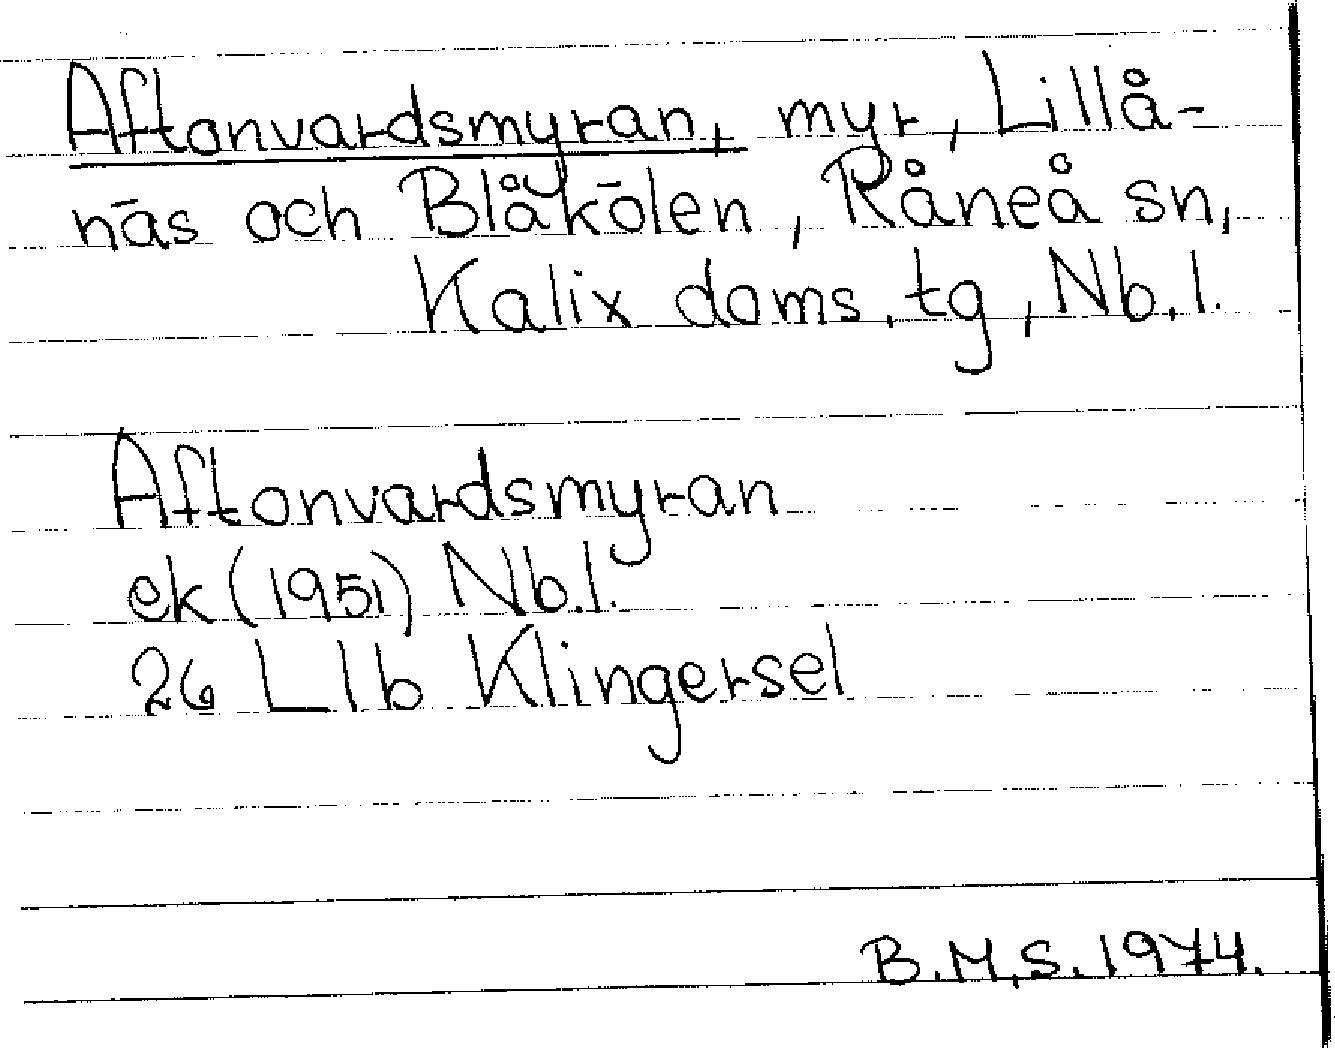 Aftonvardsmyran, myr, Lillå-
näs och Blåkölen, Råneå sn,
Kalix doms. tg, Nb.l.
Aftonvardsmyran
ek (1951) Nb.l.
26 L Ib Klingersel
B.M.S. 1974.